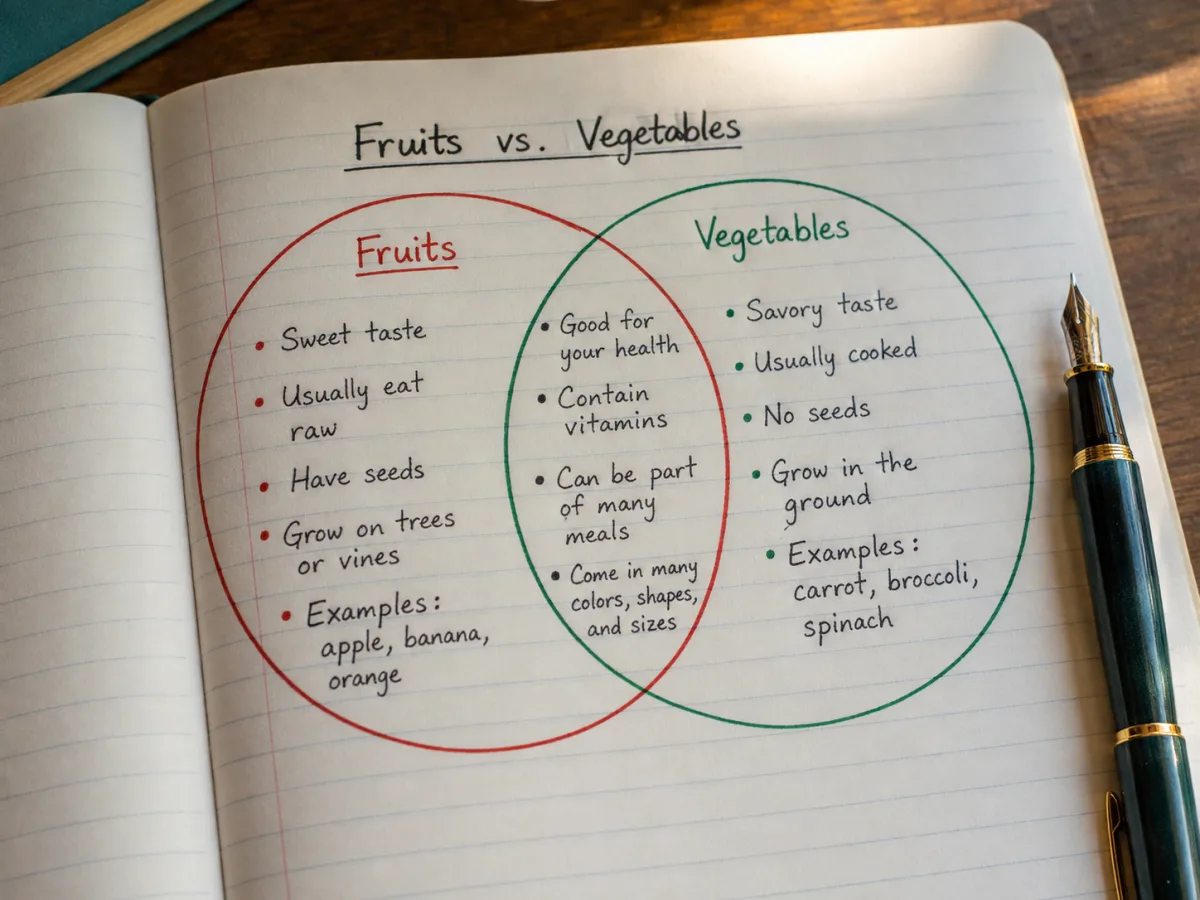 Fruits vs. Vegetables
Fruits
• Sweet taste
• Usually eat
raw
• Have seeds
• Grow on trees
or vines
• Examples:
apple, banana,
orange
• Good for
your health
• Contain
vitamins
• Can be part
of many
meals
• Come in many
colors, shapes,
and sizes
Vegetables
• Savory taste
• Usually cooked
• No seeds
• Grow in the
ground
• Examples:
carrot, broccoli,
spinach